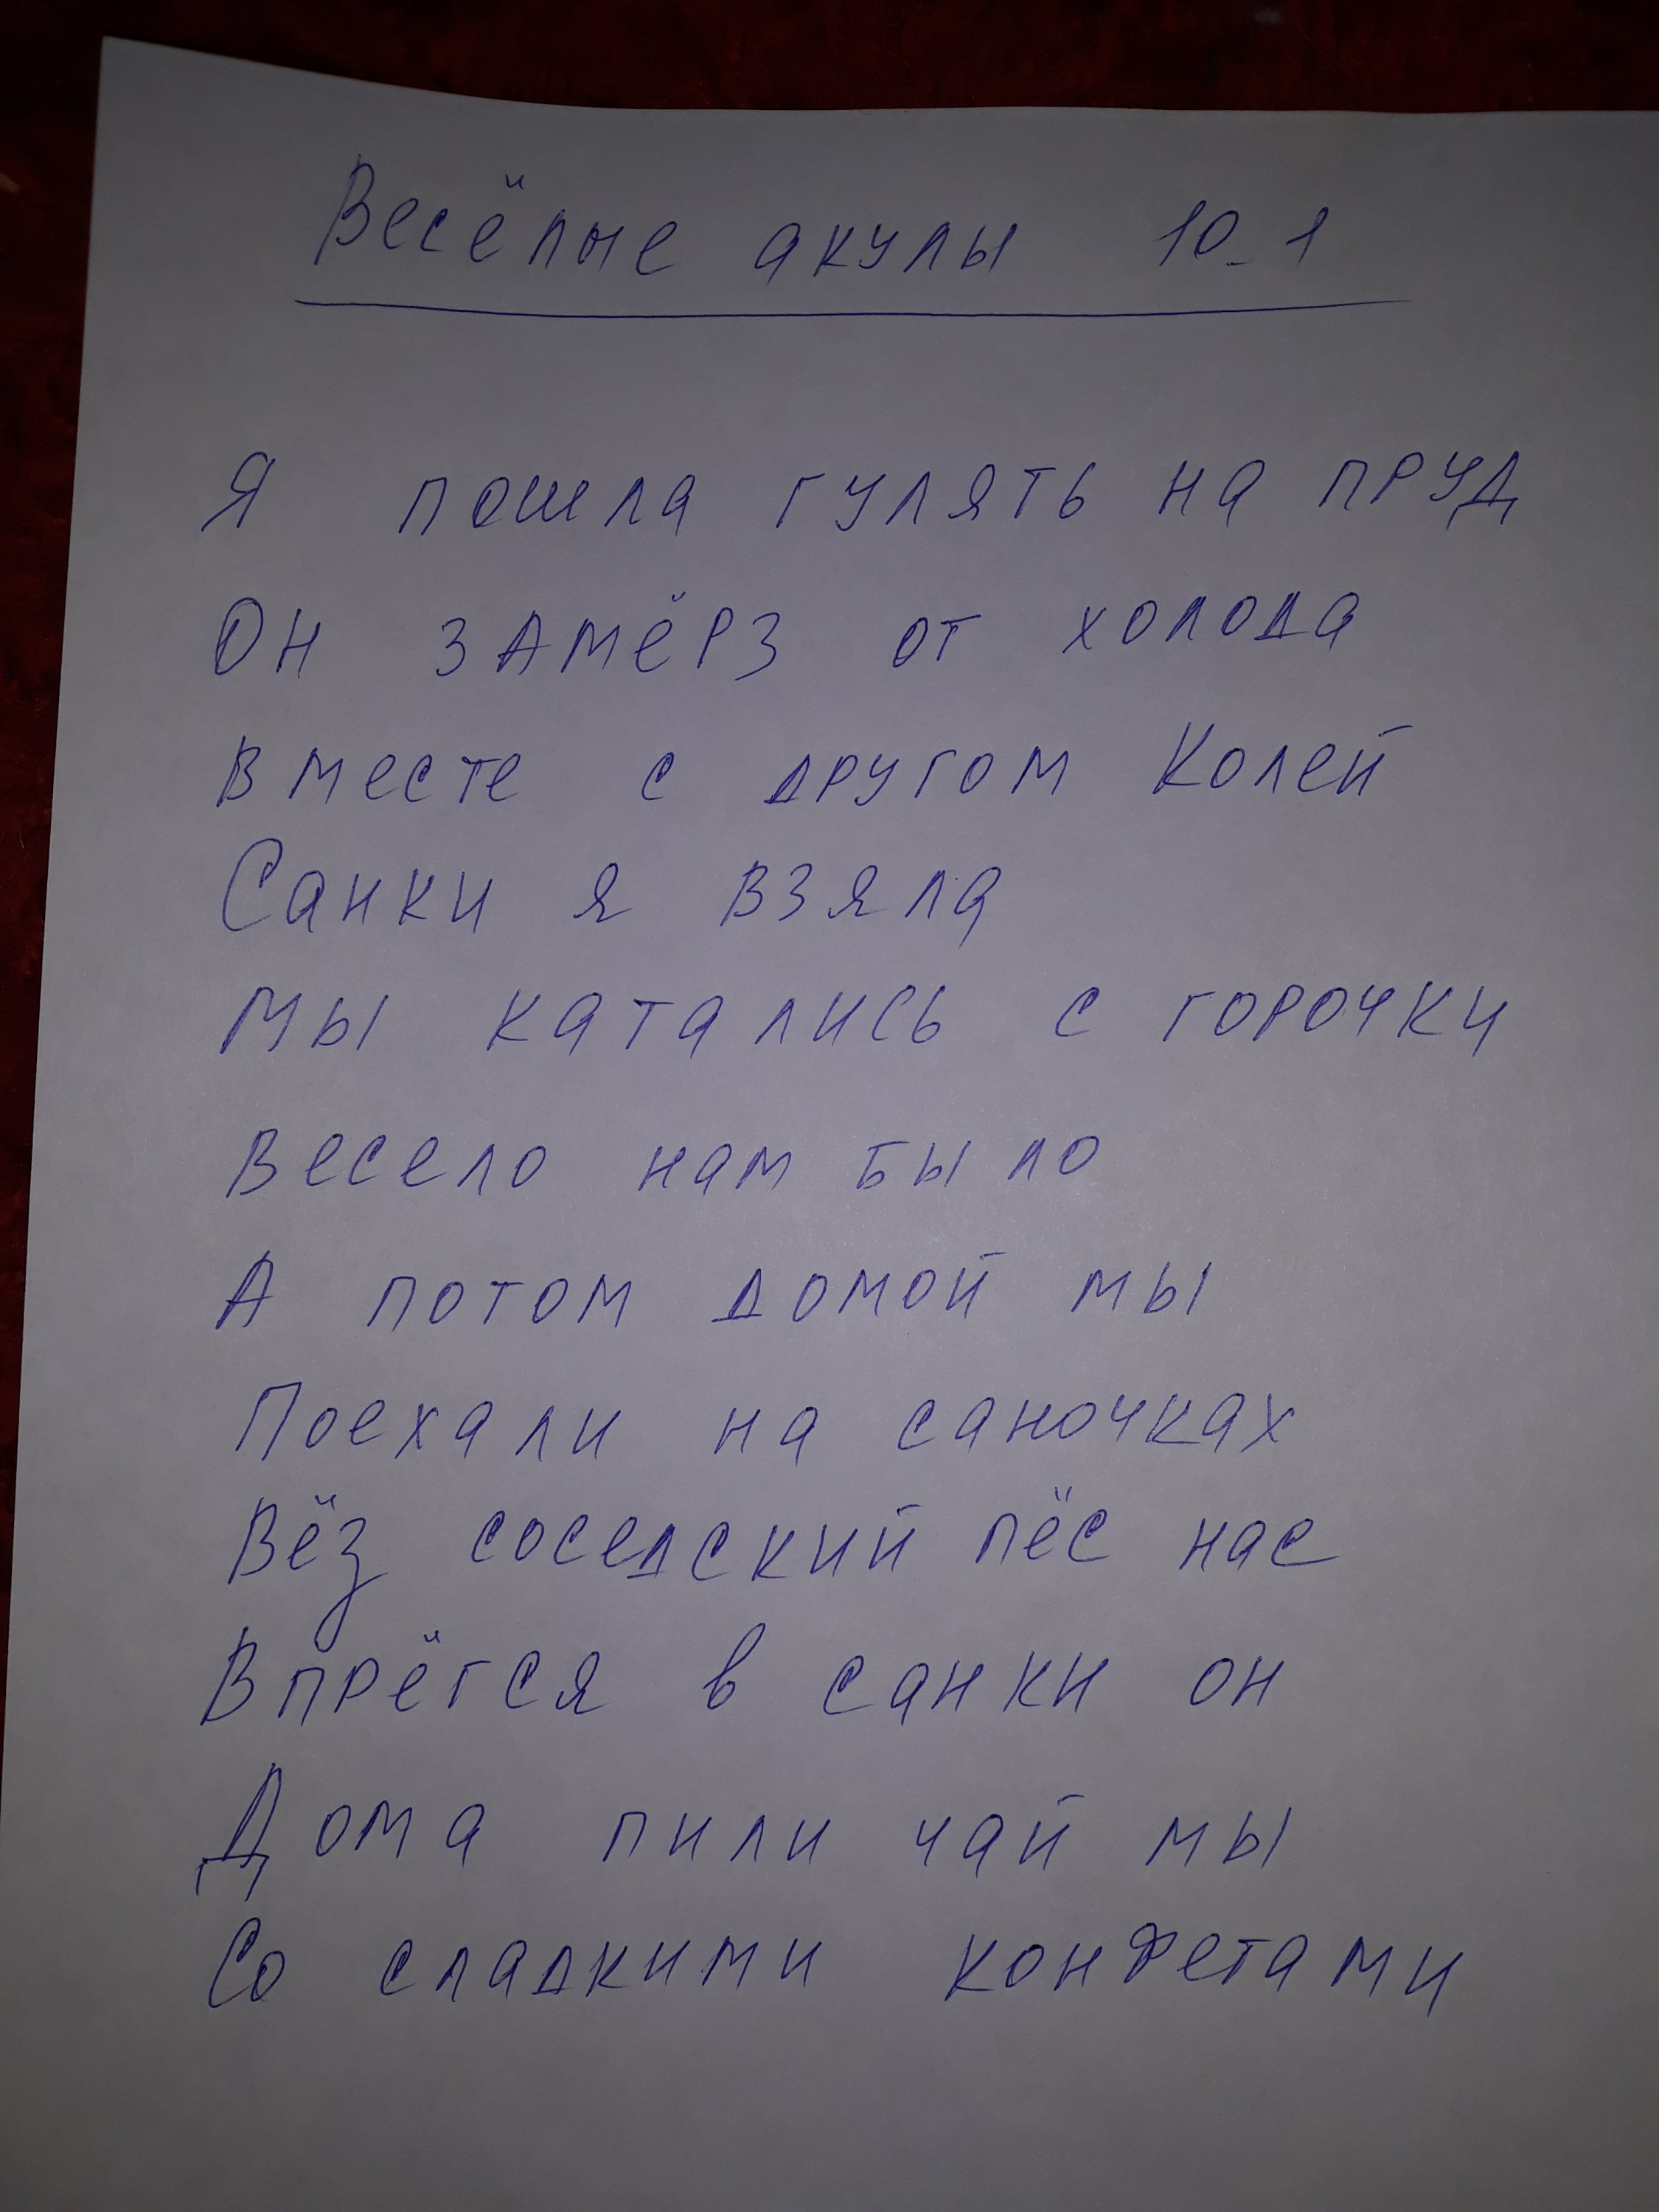 Весёлые акулы 10_1
Я пошла гулять на пруд
Он замёрз от холода
Вместе с другом Колей
Санки я взяла
Мы катались с горочки
Весело нам было
А потом домой мы
Поехали на саночках
Вёз соседский пёс нас
Впрёгся в санки он
Дома пили чай мы
Со сладкими конфетами